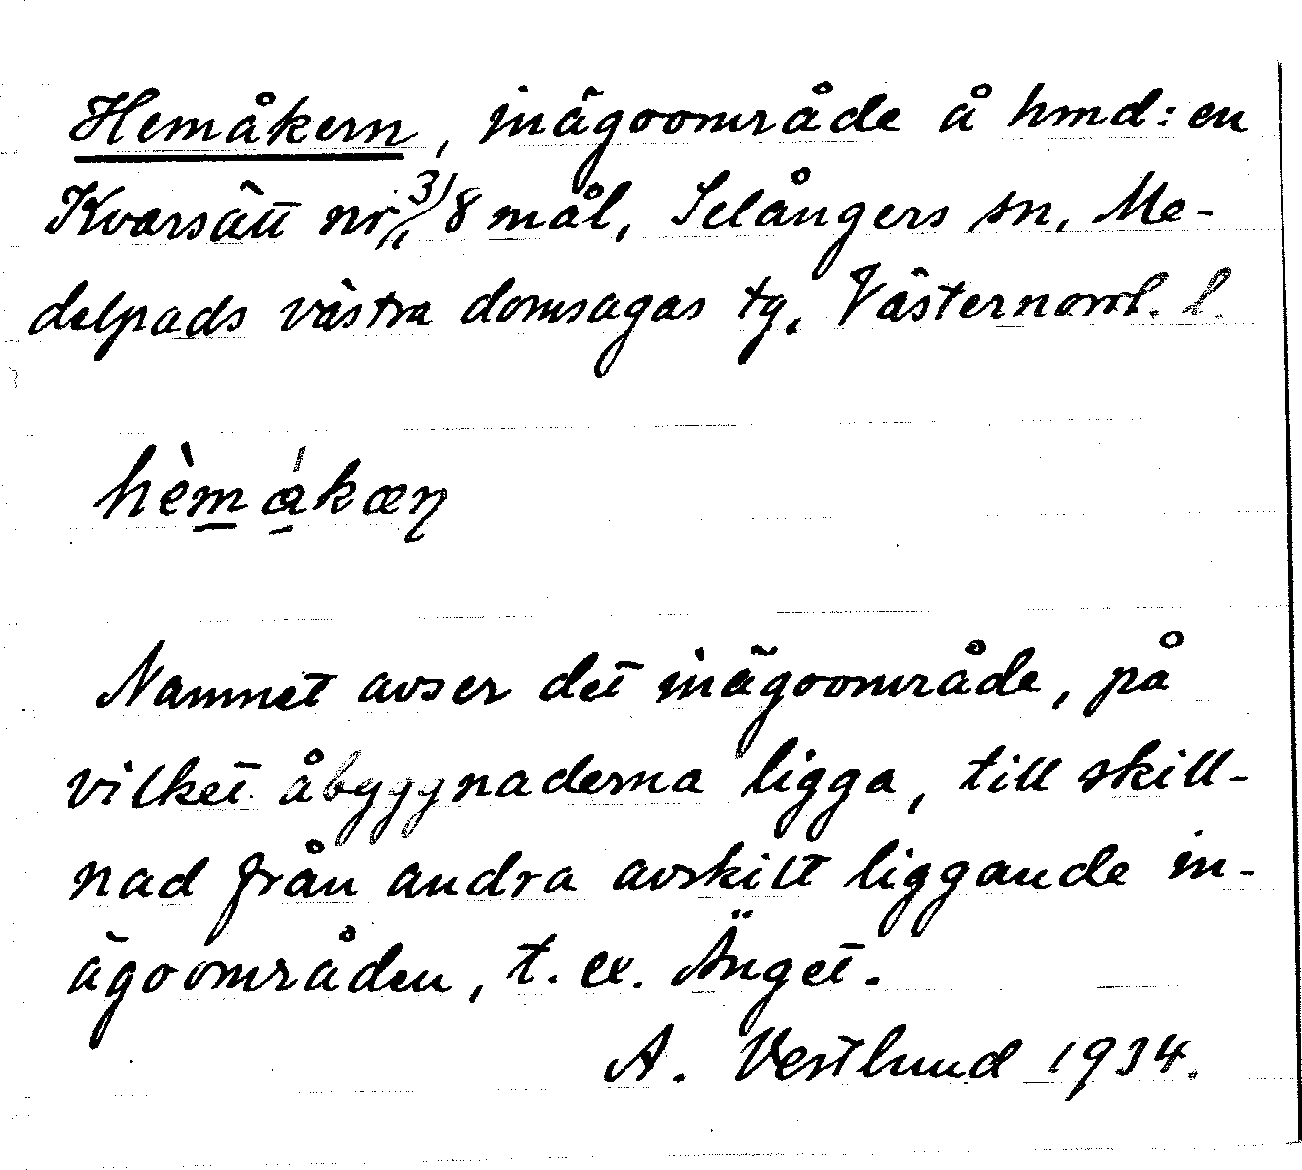 Hemåkern, inägoområde å hmd:en
Kvarsätt nr 3/8 mål, Selångers sn, Me-
delpads västra domsagas tg, Västernorrl. l.
hèmåkæɳ
Namnet avser det inägoområde, på
vilket åbyggnaderna ligga, till skill-
nad från andra avskilt liggande in-
ägoområden, t. ex. Änget.
A. Vestlund 1934.